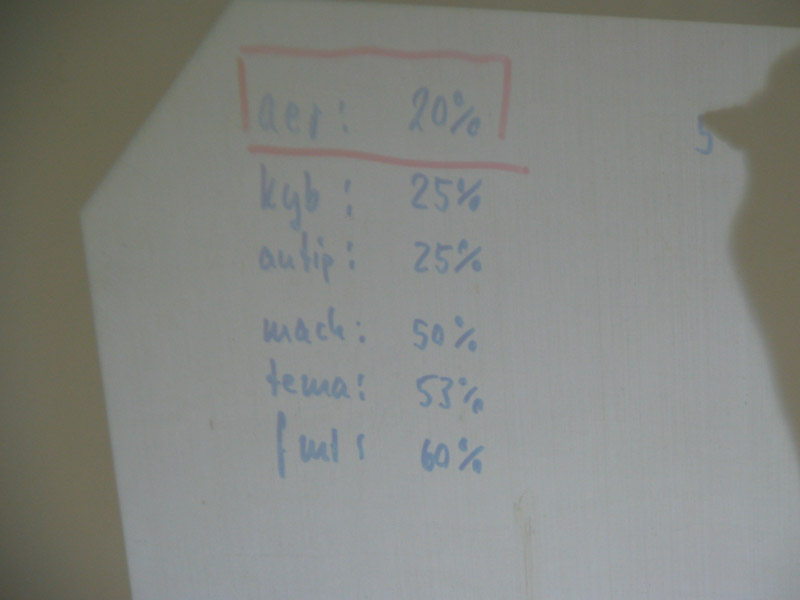 aer: 20%
5
kyb: 25%
antip: 25%
mach: 50%
tema: 53%
fmt: 60%